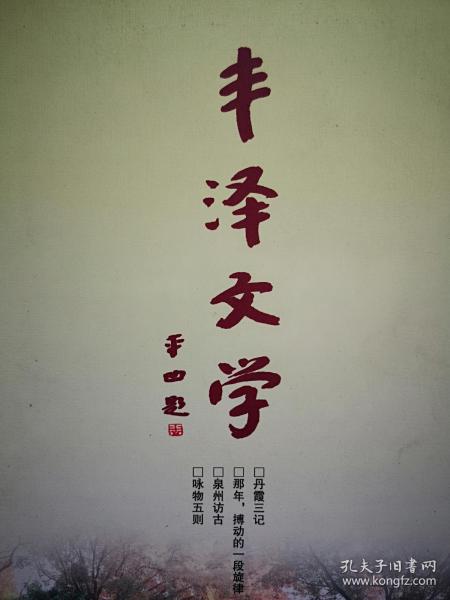 丰泽文学
平凹题
□丹霞三记
□那年，搏动的一段旋律
□泉州访古
□咏物五则
孔夫子旧书网
www.kongfz.com